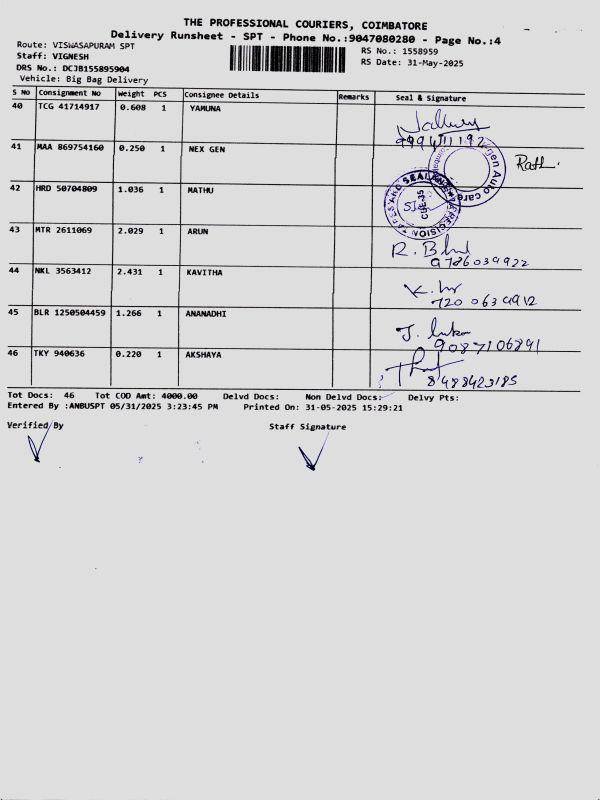 THE PROFESSIONAL COURIERS, COIMBATORE
Delivery Runsheet - SPT - Phone No.:9047080280 - Page No.:4
Route: VISWASAPURAM SPT
Staff: VIGNESH
DRS No.: DCJB155895904
Vehicle: Big Bag Delivery
RS No.: 1558959
RS Date: 31-May-2025
S No Consignment No Weight PCS Consignee Details Remarks Seal & Signature
40 TCG 41714917 0.608 1 YAMUNA
41 MAA 869754160 0.250 1 NEX GEN
42 HRD 50704809 1.036 1 MATHU
43 MTR 2611069 2.029 1 ARUN R.
9786039922
44 NKL 3563412 2.431 1 KAVITHA K.
45 BLR 1250504459 1.266 1 ANANADHI J.
9087106891
46 TKY 940636 0.220 1 AKSHAYA
8488423185
Tot Docs: 46 Tot COD Amt: 4000.00 Delvd Docs: Non Delvd Docs: Delvy Pts:
Entered By :ANBUSPT 05/31/2025 3:23:45 PM Printed On: 31-05-2025 15:29:21
Verified By Staff Signature